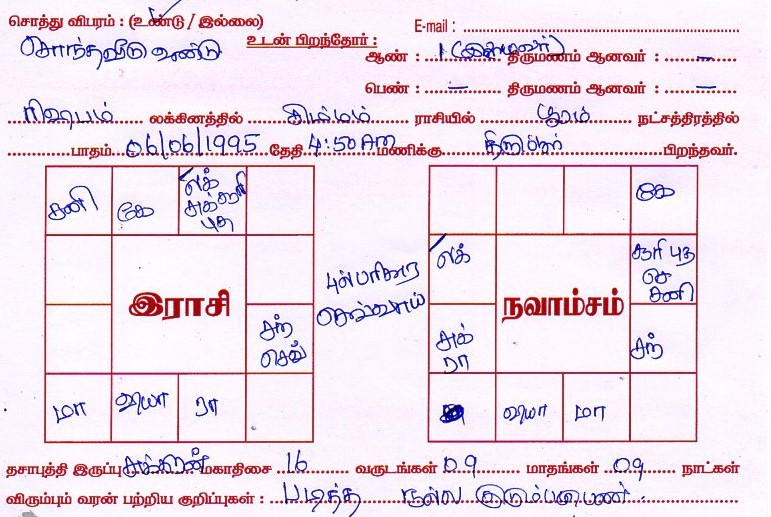 சொத்து விபரம் : (உண்டு / இல்லை)
E-mail :
சொந்தவீடு உண்டு
உடன் பிறந்தோர் :
ஆண் : 1 (இளையவர்) திருமணம் ஆனவர் : —
பெண் : — திருமணம் ஆனவர் : —
ரிஷபம் லக்கினத்தில் சிம்மம் ராசியில் பூரம் நட்சத்திரத்தில்
பாதம் 06/06/1995 தேதி 4:50 AM மணிக்கு திருச்சி பிறந்தவர்.
சனி
கே
லக்
சுக் சூரி
புத
கே
லக்
சூரி புத
செ
சனி
இராசி
பரிகார
செவ்வாய்
நவாம்சம்
சந்
செவ்
சுக்
ரா
சந்
மா
வியா
ரா
வியா
மா
தசாபுத்தி இருப்பு சுக்கிரன் மகாதிசை 16 வருடங்கள் 09 மாதங்கள் 09 நாட்கள்
விரும்பும் வரன் பற்றிய குறிப்புகள் : படித்த நல்ல குடும்பபெண்.